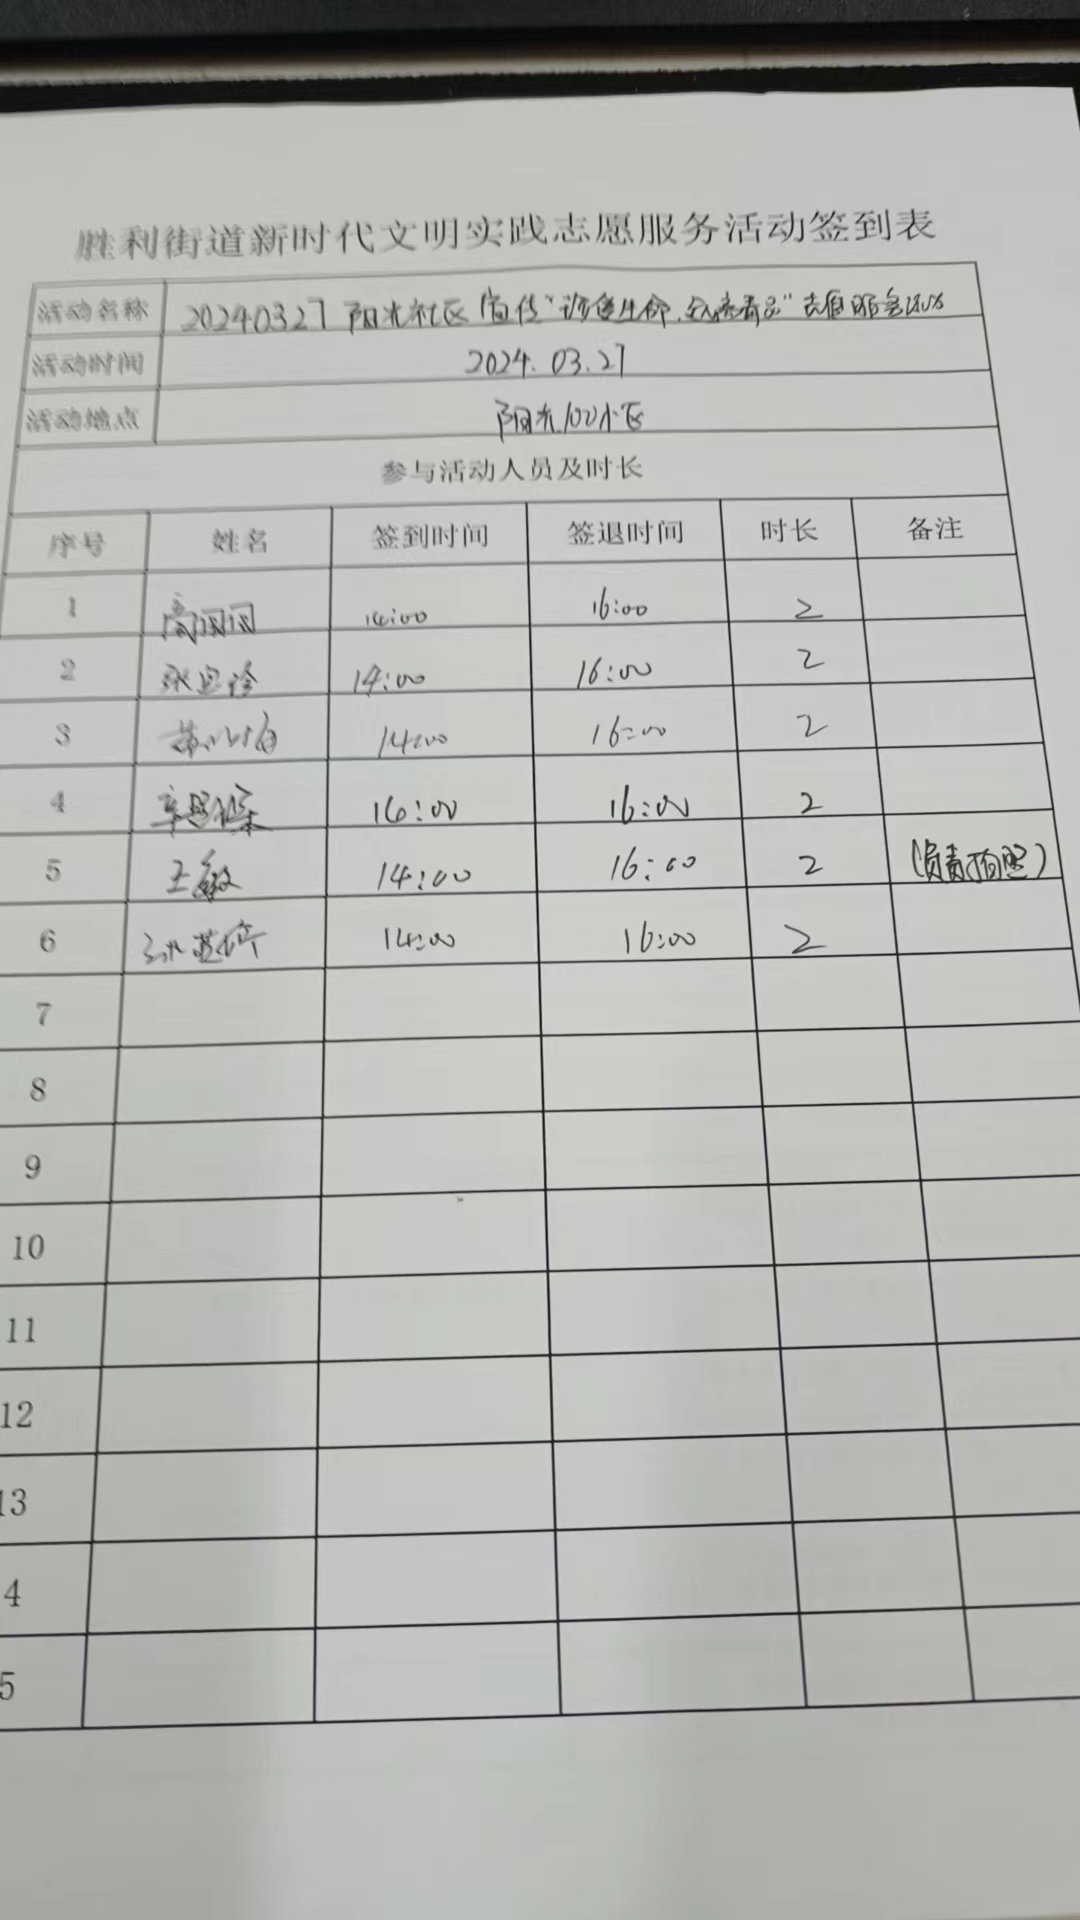 胜利街道新时代文明实践志愿服务活动签到表
活动名称 20240327 阳光社区宣传“珍爱生命,远离毒品”志愿服务活动
活动时间 2024.03.27
活动地点 阳光100小区
参与活动人员及时长
序号 姓名 签到时间 签退时间 时长 备注
1 高闰闰 14:00 16:00 2
2 14:00 16:00 2
3 14:00 16:00 2
4 16:00 16:00 2
5 王敏 14:00 16:00 2 (负责拍照)
6 14:00 16:00 2
7
8
9
10
11
12
13
4
5